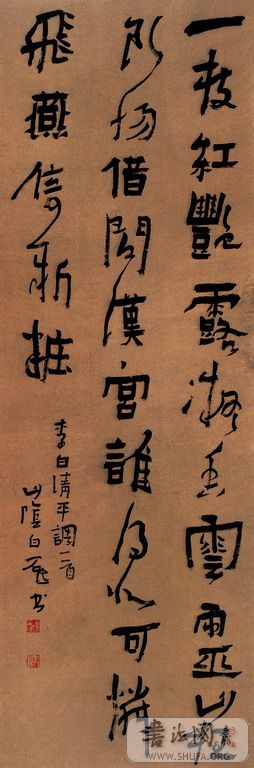 一枝紅豔露凝香雲雨巫山枉
断腸借問漢宮誰得似可憐
飛燕倚新粧
李白清平調二首
山陰白砥書
WWW.SHUFA.ORG